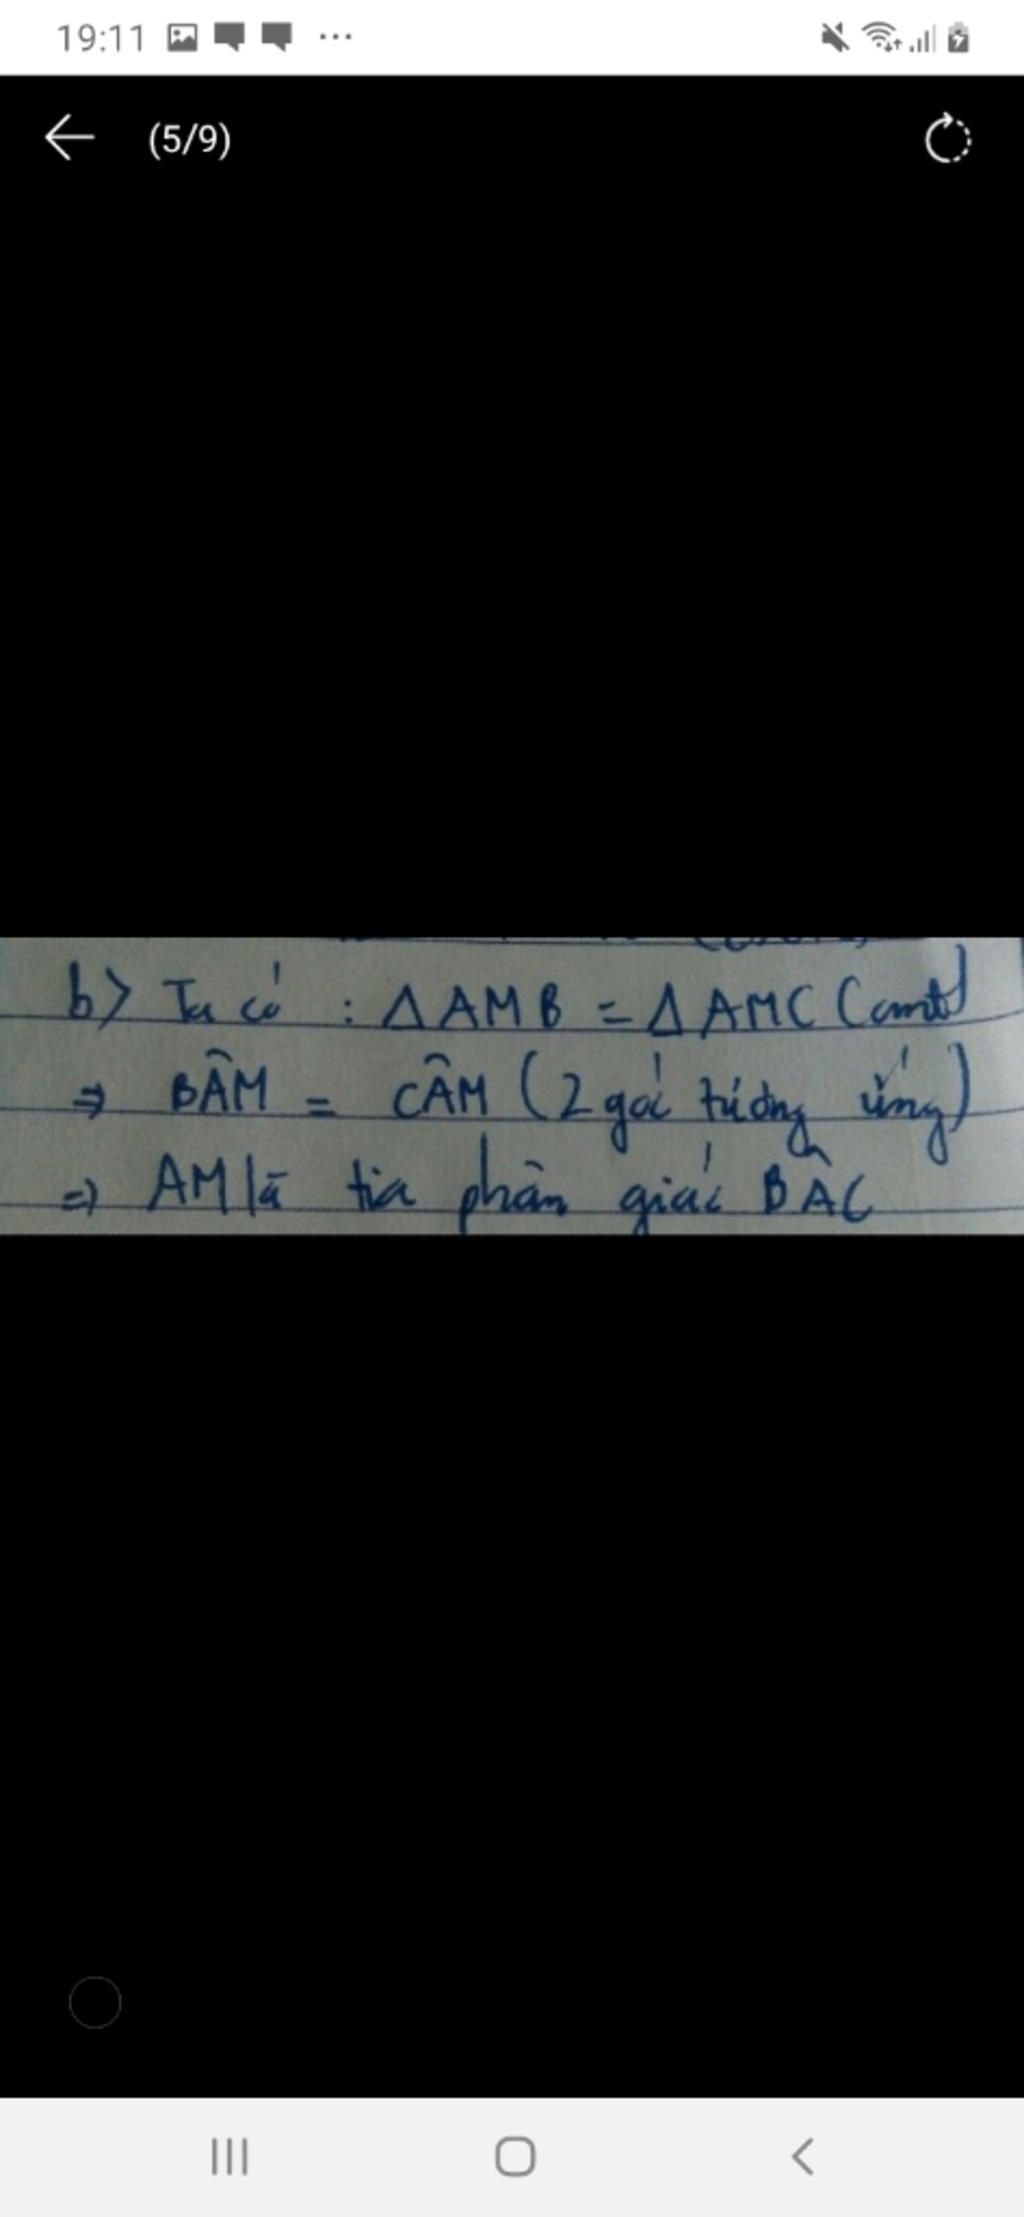 19:11
(5/9)
b) Ta có : ΔAMB = ΔAMC (cmt)
⇒ BÂM = CÂM (2 góc tương ứng)
⇒ AM là tia phân giác BÂC